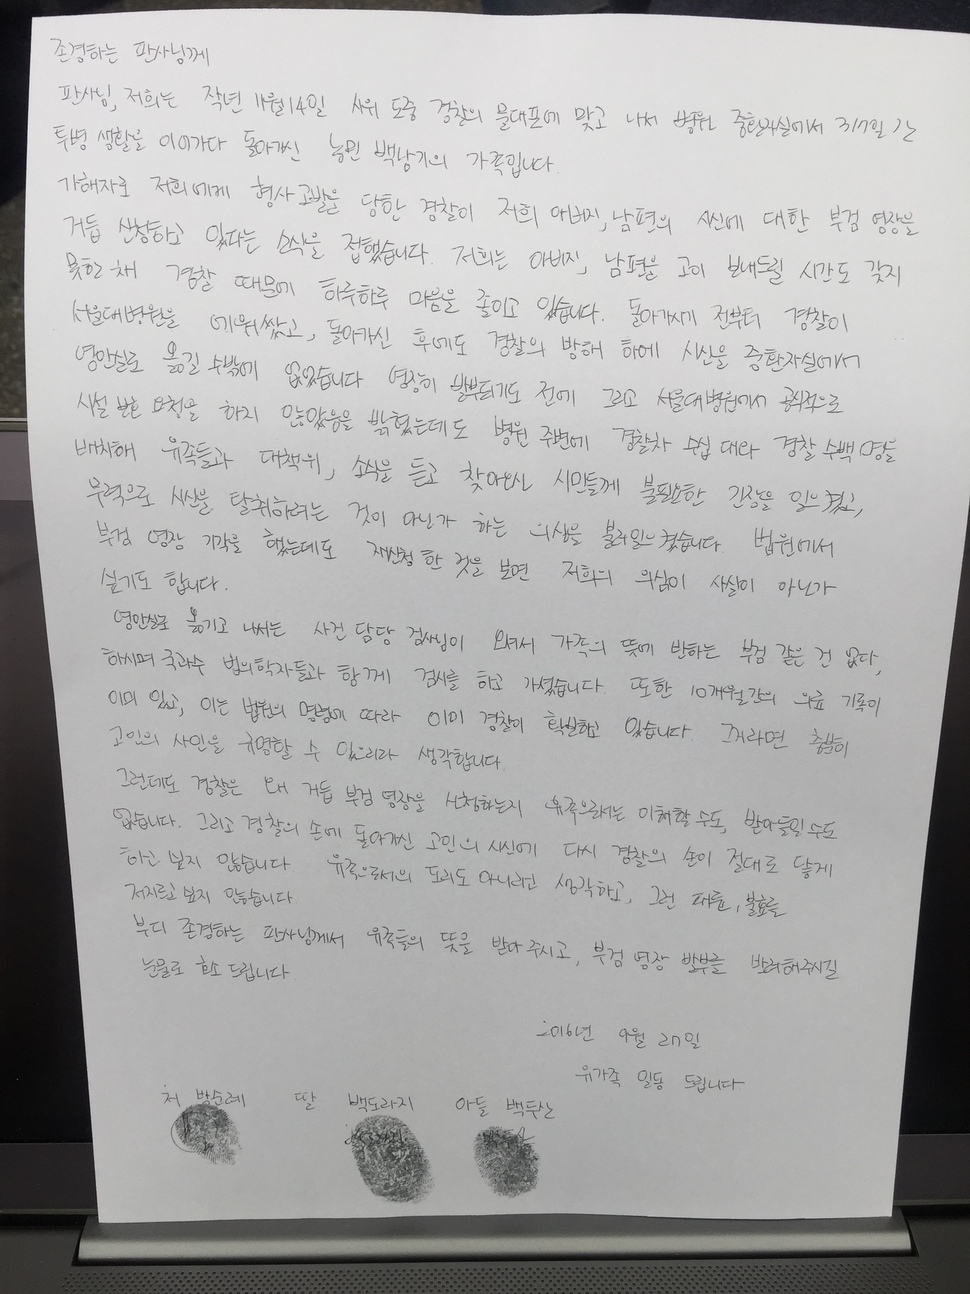 존경하는 판사님께
판사님, 저희는 작년 11월 14일 시위 도중 경찰의 물대포에 맞고 나서 병원 중환자실에서 317일 간
투병 생활을 이어가다 돌아가신 농민 백남기의 가족입니다.
가해자로 저희에게 형사 고발을 당한 경찰이 저희 아버지, 남편의 시신에 대한 부검 영장을
거듭 신청하고 있다는 소식을 접했습니다. 저희는 아버지, 남편을 고이 보내드릴 시간도 갖지
못한 채 경찰 때문에 하루하루 마음을 졸이고 있습니다. 돌아가시기 전부터 경찰이
서울대병원을 에워쌌고, 돌아가신 후에도 경찰의 방해 하에 시신을 중환자실에서
영안실로 옮길 수밖에 없었습니다 영장이 발부되기도 전에 그리고 서울대병원에서 공식적으로
시설 보호 요청을 하지 않았음을 밝혔는데도 병원 주변에 경찰차 수십 대와 경찰 수백 명을
배치해 유족들과 대책위, 소식을 듣고 찾아오신 시민들께 불필요한 긴장을 일으켰고,
무력으로 시신을 탈취하려는 것이 아닌가 하는 의심을 불러일으켰습니다. 법원에서
부검 영장 기각을 했는데도 재신청 한 것을 보면 저희의 의심이 사실이 아닌가
싶기도 합니다.
영안실로 옮기고 나서는 사건 담당 검사님이 오셔서 가족의 뜻에 반하는 부검 같은 건 없다,
하시며 국과수 법의학자들과 함께 검시를 하고 가셨습니다. 또한 10개월간의 의료 기록이
이미 있고, 이는 법원의 명령에 따라 이미 경찰이 확보하고 있습니다. 그거라면 충분히
고인의 사인을 규명할 수 있으리라 생각합니다.
그런데도 경찰은 왜 거듭 부검 영장을 신청하는지 유족으로서는 이해할 수도, 받아들일 수도
없습니다. 그리고 경찰의 손에 돌아가신 고인의 시신에 다시 경찰의 손이 절대로 닿게
하고 싶지 않습니다 유족으로서의 도리도 아니라고 생각하고, 그런 패륜, 불효를
저지르고 싶지 않습니다
부디 존경하는 판사님께서 유족들의 뜻을 받아 주시고, 부검 영장 발부를 반려해주시길
눈물로 호소 드립니다
2016년 9월 27일
유가족 일동 드립니다
처 박순례 딸 백도라지 아들 백두산